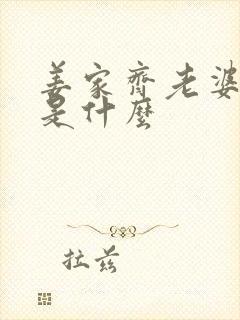 姜家齐老婆
是什麼
拉兹